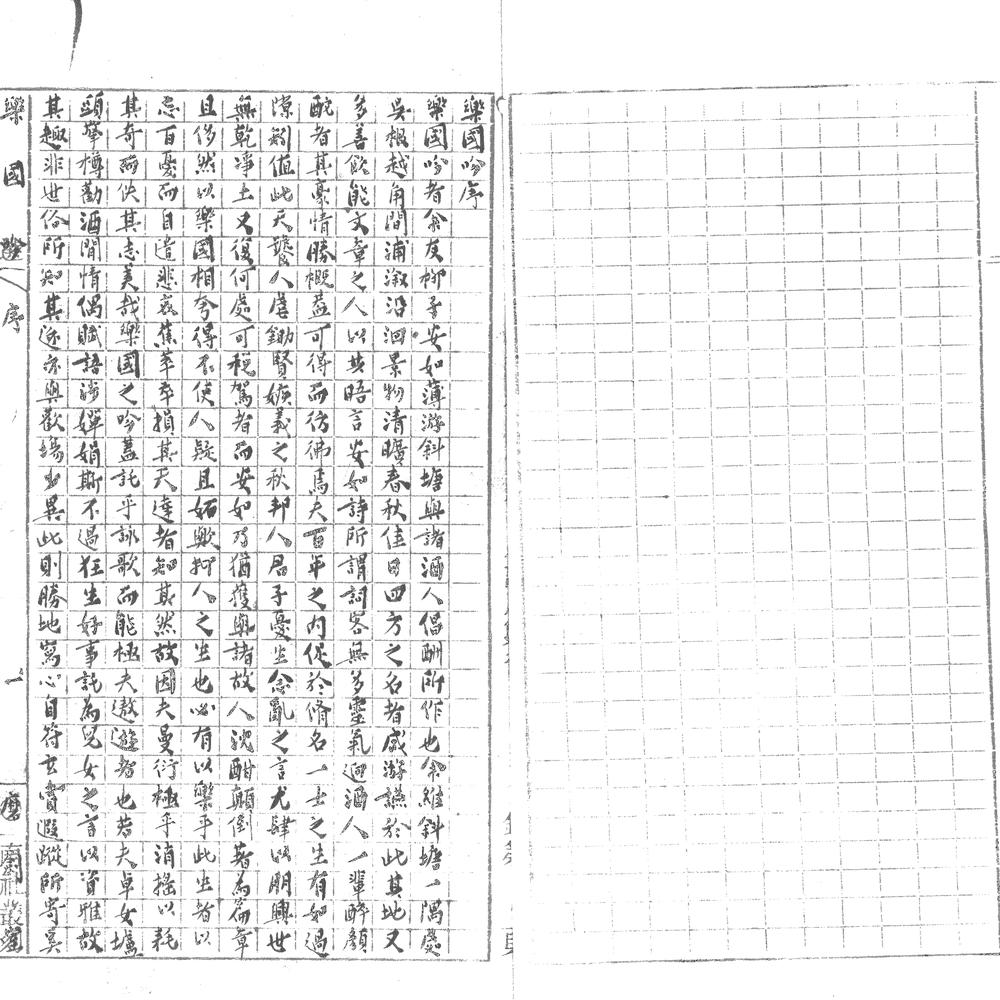 樂國吟序
樂國吟者余友柳子安如薄游斜塘與諸酒人倡酬所作也余維斜塘一隅處
吳根越角間浦溆沿洄景物清曠春秋佳日四方之名者咸游讌於此其地又
多善飲能文章之人以其晤言安如詩所謂詞客無多靈氣迴酒人一輩醉顏
酡者其豪情勝概蓋可得而彷彿焉夫百年之內促於脩名一士之生有如過
隙矧值此天
人虐鋤賢嫉義之秋邦人君子憂生念亂之言尤肆以朋興世
無乾淨土又復何處可稅駕者而安如乃猶獲與諸故人沈酣顛倒著為篇章
且侈然以樂國相夸得不使人疑且妬歟抑人之生也必有以樂乎此生者以
忘百憂而自遣悲哀蕉萃率損其天達者知其然故因夫曼衍極乎消搖以耗
其奇而佚其志美哉樂國之吟蓋託乎詠歌而能極夫遨遊者也若夫卓女壚
頭擎樽勸酒閒情偶賦語涉嬋娟斯不過狂生好事託為兒女之言以資雅故
其趣非世俗所知其迹亦與歡場少異此則勝地寫心自符玄賞遐蹤所寄奚
樂國吟
序
一
叢書